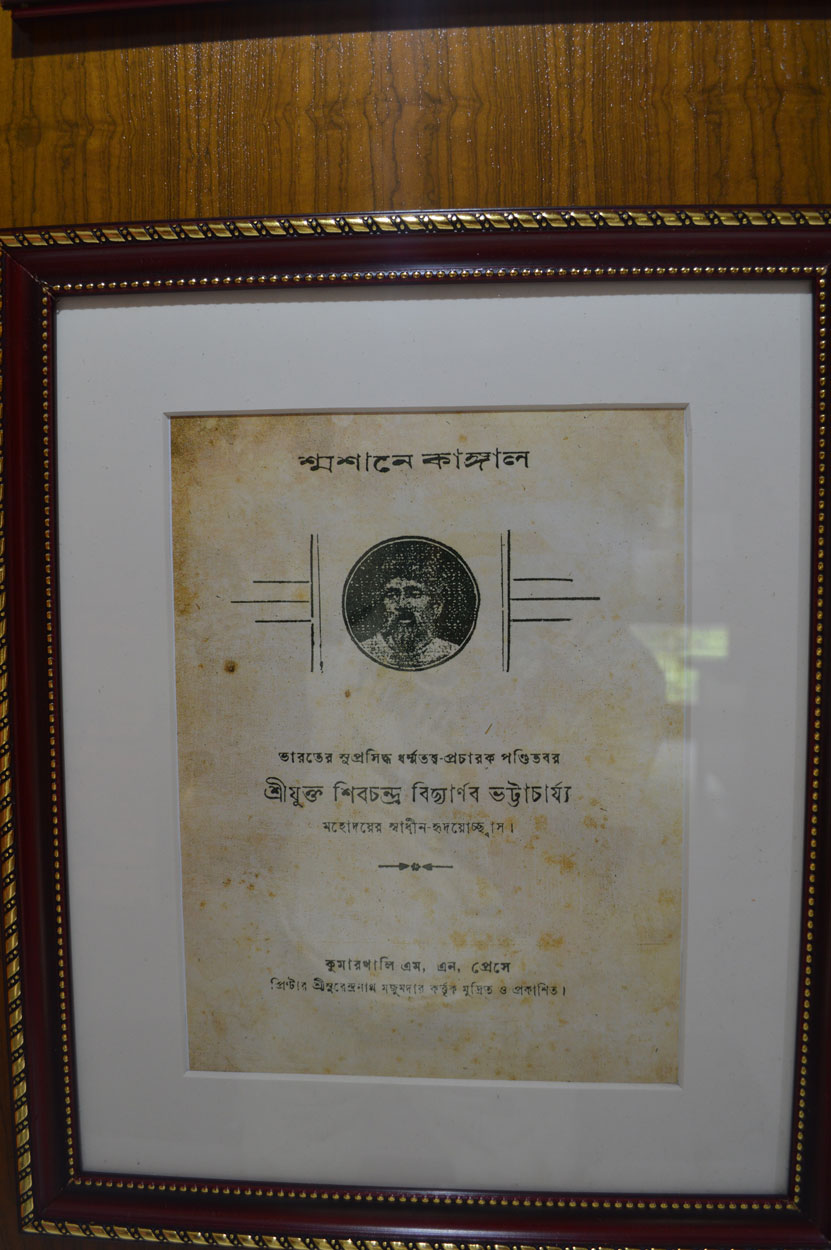 শ্মশানে কাঙ্গাল
ভারতের সুপ্রসিদ্ধ ধর্ম্মতত্ত্ব-প্রচারক পণ্ডিতবর
শ্রীযুক্ত শিবচন্দ্র বিদ্যার্ণব ভট্টাচার্য্য
মহোদয়ের স্বাধীন-হৃদয়োচ্ছ্বাস।
কুমারখালি এম, এন, প্রেসে
প্রিণ্টার শ্রীসুরেন্দ্রনাথ মজুমদার কর্ত্তৃক মুদ্রিত ও প্রকাশিত।